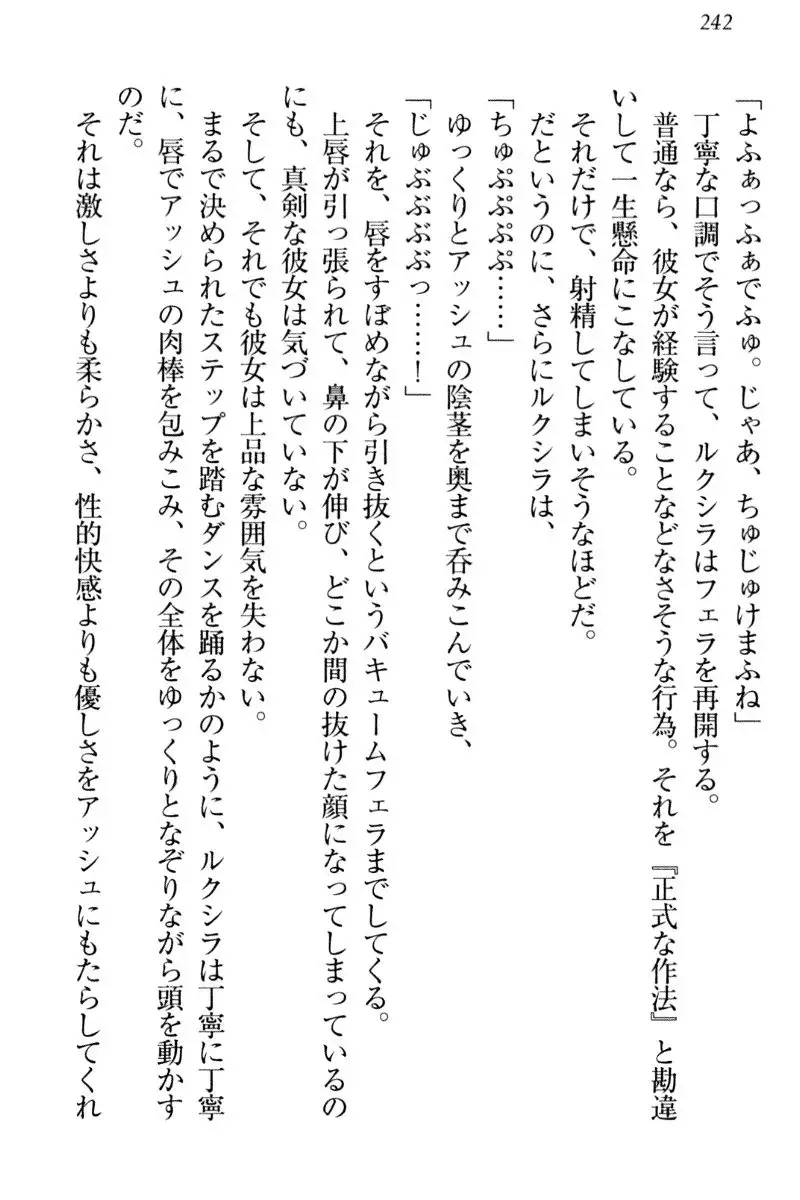 242
「よふぁっふぁでふゅ。じゃあ、ちゅじゅけまふね」
丁寧な口調でそう言って、ルクシラはフェラを再開する。
普通なら、彼女が経験することなどなさそうな行為。それを『正式な作法』と勘違
いして一生懸命にこなしている。
それだけで、射精してしまいそうなほどだ。
だというのに、さらにルクシラは、
「ちゅぷぷぷぷ……」
ゆっくりとアッシュの陰茎を奥まで呑みこんでいき、
「じゅぶぶぶぶっ……！」
それを、唇をすぼめながら引き抜くというバキュームフェラまでしてくる。
上唇が引っ張られて、鼻の下が伸び、どこか間の抜けた顔になってしまっているの
にも、真剣な彼女は気づいていない。
そして、それでも彼女は上品な雰囲気を失わない。
まるで決められたステップを踏むダンスを踊るかのように、ルクシラは丁寧に丁寧
に、唇でアッシュの肉棒を包みこみ、その全体をゆっくりとなぞりながら頭を動かす
のだ。
それは激しさよりも柔らかさ、性的快感よりも優しさをアッシュにもたらしてくれ